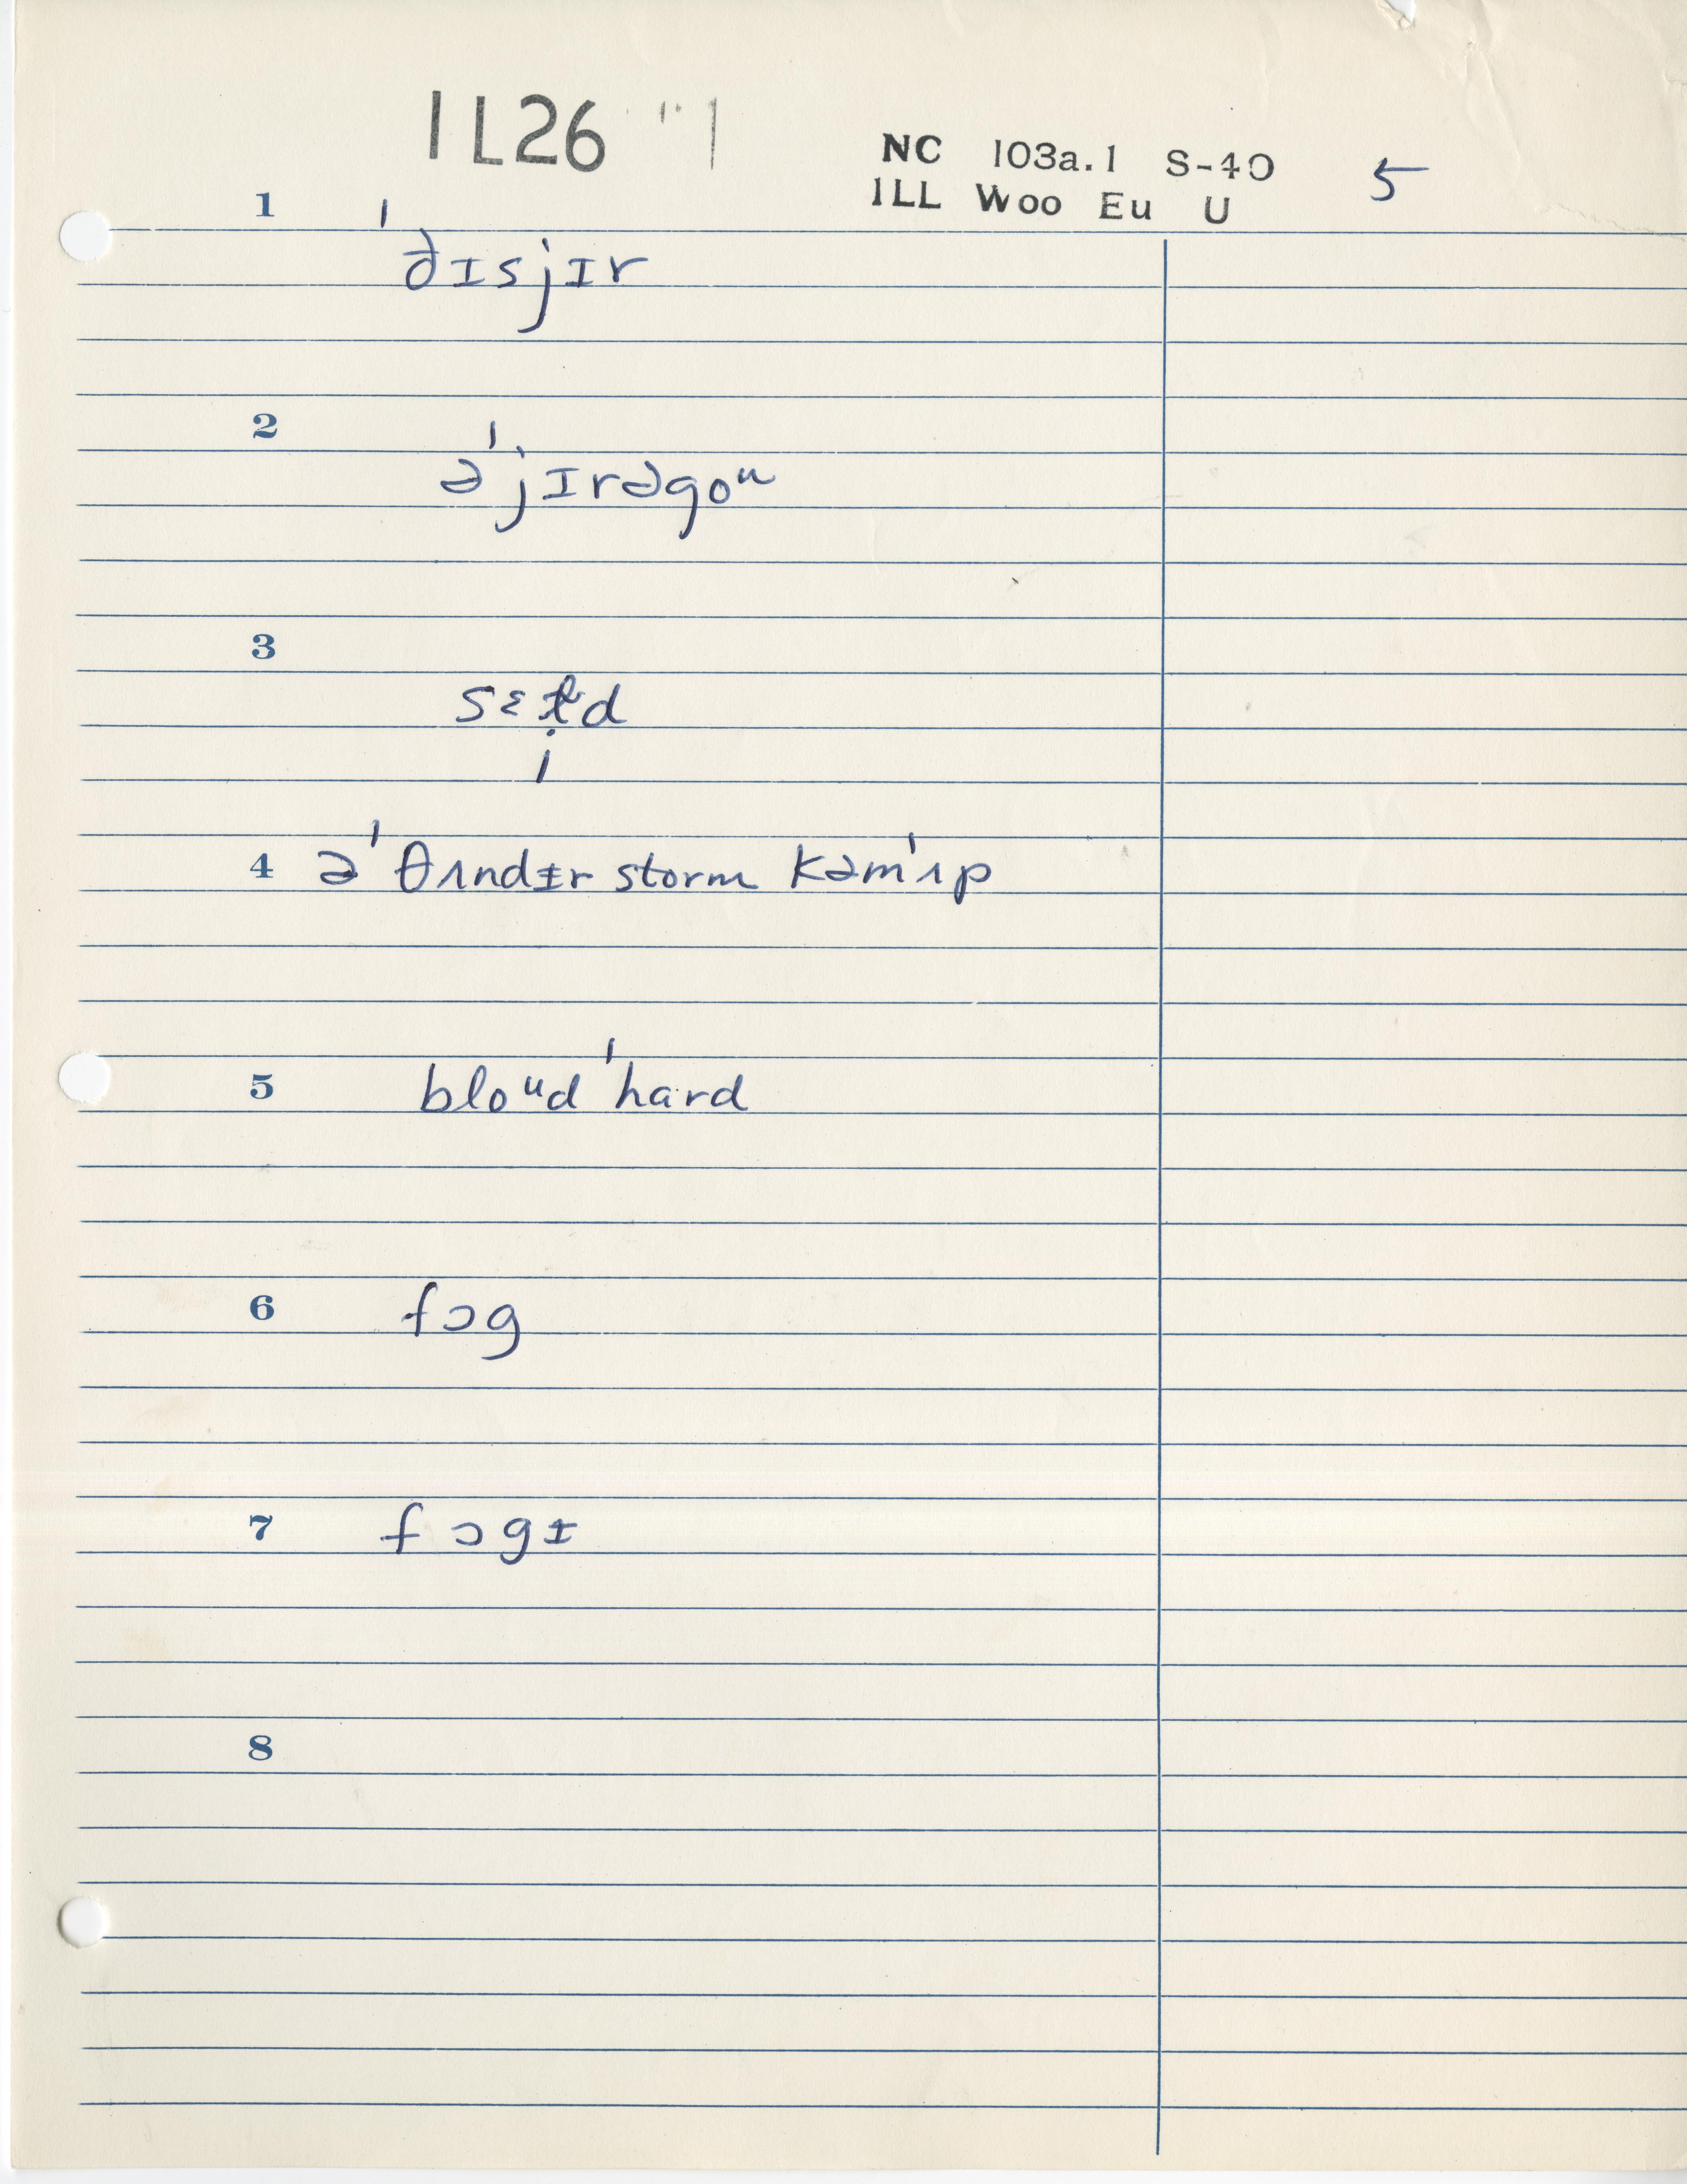 IL26
NC 103a.1 S-40
ILL Woo Eu U
5
1 ˈðɪsjɪr
2 əˈjɪrəgoᵘ
3
i
4 əˈθʌndɪrstorm kəmˈʌp
5 bloᵘdˈhard
6 fɔg
7 fɔgɪ
8